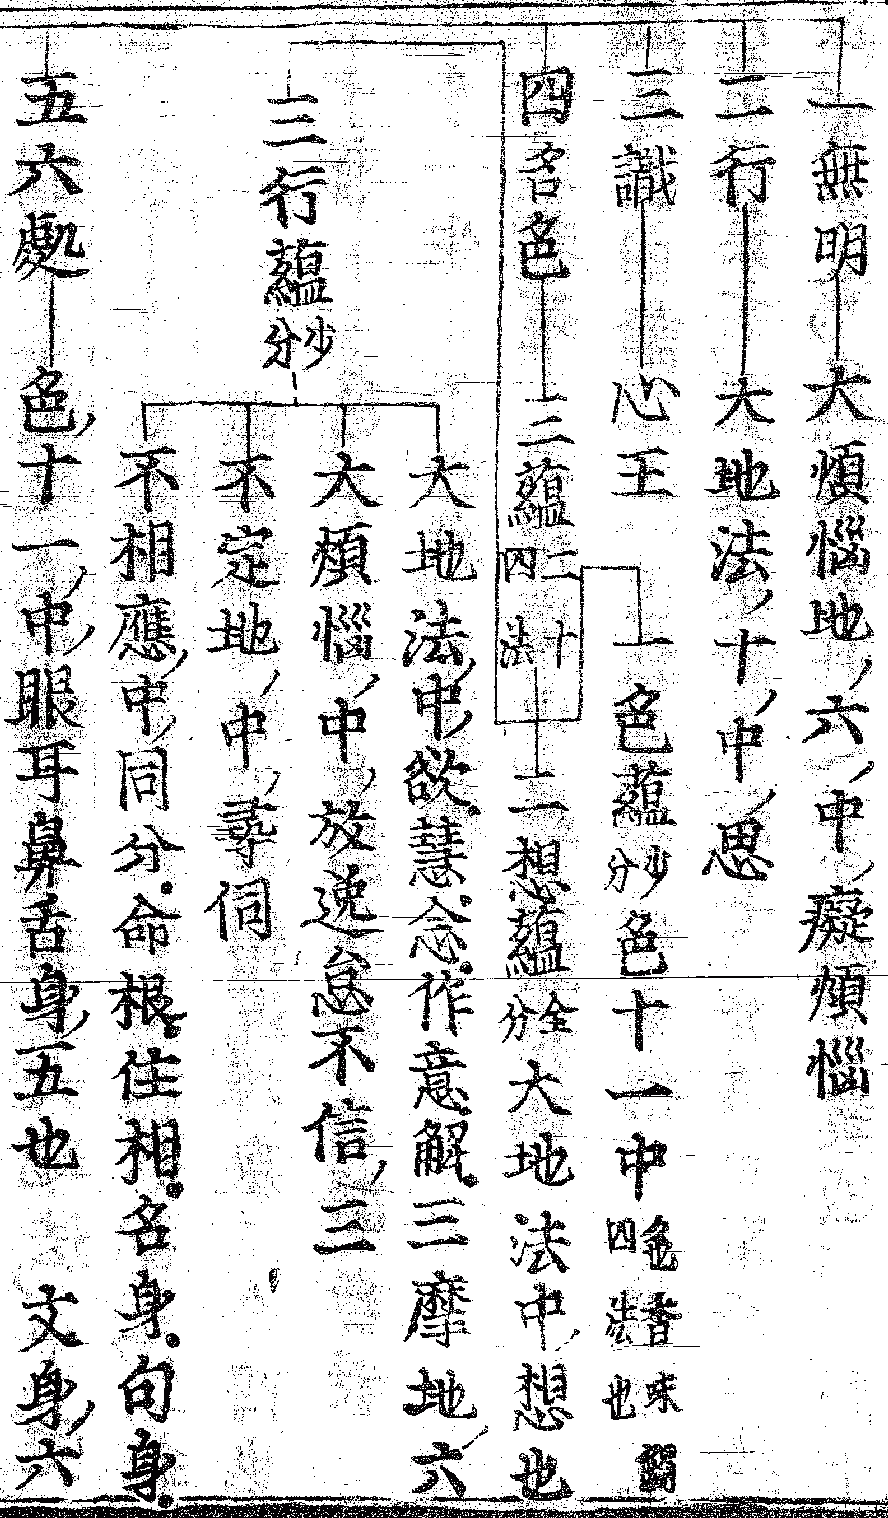 一無明大煩惱地、六、中、癡煩惱
二行大地法、十、中、思
三識心王
一色蘊少分色十一中色香味觸四法也
四名色三蘊二十四法
二想蘊全分大地法中、想也
三行蘊少分
大地法、中、欲慧念作意解三摩地、六
大煩惱、中、放逸怠不信、三
不定地、中、尋伺
不相應、中、同分命根住相名身句身
文身、六
五六處色、十一、中、眼耳鼻舌身、五也